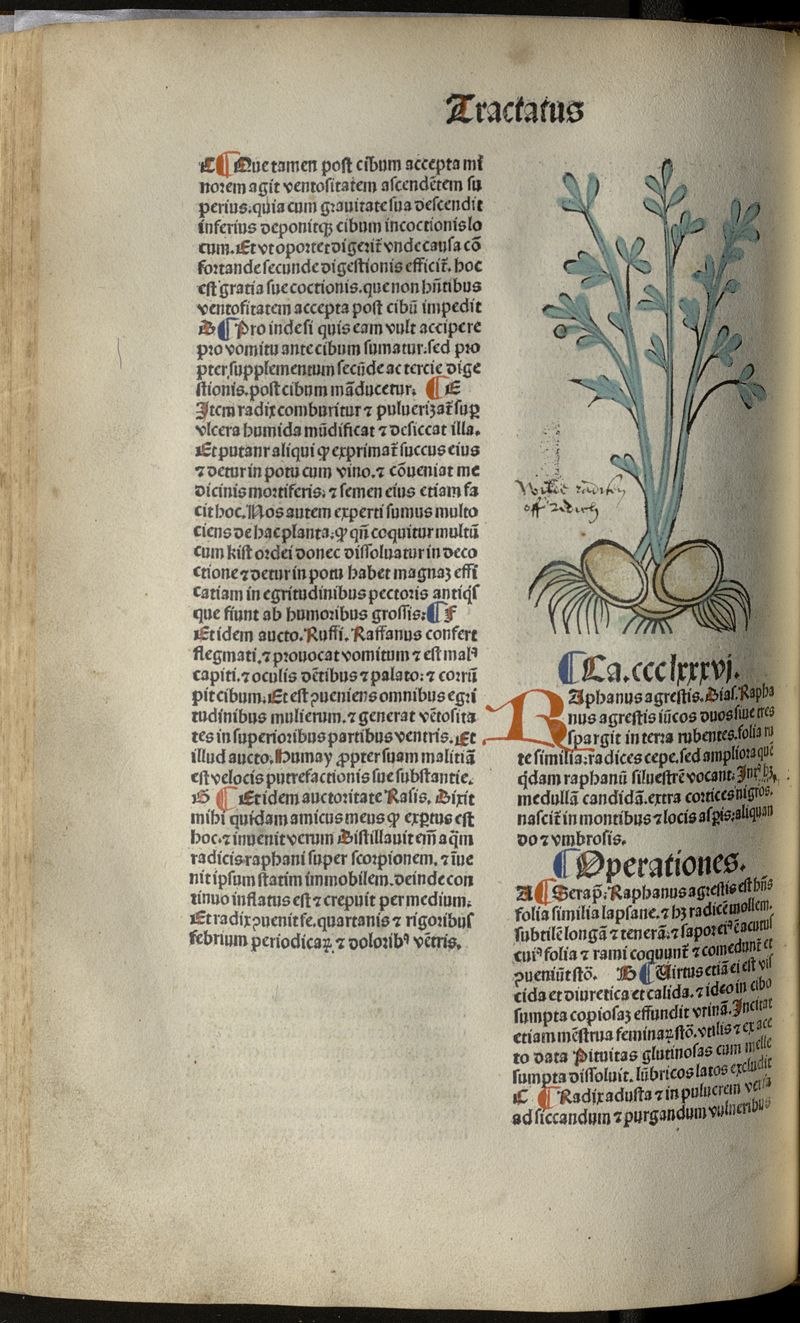 Tractatus
C ¶ Que tamen post cibum accepta mi
norem agit ventositatem ascendētem su
perius. quia cum grauitate sua descendit
inferius deponitqꝫ cibum incoctionis lo
cum. Et vt oportet digerit̃ vnde causa cō
fortande secunde digestionis efficit̃. hoc
est gratia sue coctionis. que non hñtibus
ventositatem accepta post cibū impedit
D ¶ Pro inde si quis eam vult accipere
pro vomitu ante cibum sumatur. sed pro
pter supplementum secūde ac tercie dige
stionis. post cibum māducetur. ¶ E
Item radix comburitur ⁊ puluerizat̃ sup̱
vlcera humida mūdificat ⁊ desiccat illa.
Et putant̃ aliqui ꝙ exprimat̃ succus eius
⁊ detur in potu cum vino. ⁊ cōueniat me
dicinis mortiferis: ⁊ semen eius etiam fa
cit hoc. Nos autem experti sumus multo
ciens de hac planta: ꝙ qñ coquitur multū
cum kist ordei donec dissoluatur in deco
ctione ⁊ detur in potu habet magnaꝫ effi
catiam in egritudinibus pectoris antiqͥs
que fiunt ab humoribus grossis: ¶ F
Et idem aucto. Ruffi. Raffanus confert
flegmati. ⁊ prouocat vomitum ⁊ est malꝰ
capiti. ⁊ oculis dētibus ⁊ palato: ⁊ corrū
pit cibum. Et est ꝯueniens omnibus egri
tudinibus mulierum. ⁊ generat vētosita
tes in superioribus partibus ventris. Et
illud aucto. Humay ꝓpter suam malitiā
est velocis putrefactionis sue substantie.
G ¶ Et idem auctoritate Rasis. Dixit
mihi quidam amicus meus ꝙ exꝑtus est
hoc. ⁊ inuenit verum Distillauit em̄ aq̄m
radicis raphani super scorpionem. ⁊ īue
nit ipsum statim immobilem. deinde con
tinuo inflatus est ⁊ crepuit per medium.
Et radix ꝯuenit fe. quartanis ⁊ rigoribus
febrium periodicaꝝ ⁊ doloribꝰ vētris.
Wilde
off
¶ Ca. cccclxxxvj.
RAphanus agrestis. Dias. Rapha
nus agrestis iūcos duos siue tres
spargit in terra rubentes. folia ru
te similia: radices cepe. sed ampliora que
q̇dam raphanū siluestrē vocant. Intꝰ hꝫ
medullā candidā. extra cortices nigros.
nascit̃ in montibus ⁊ locis asꝑis: aliquan
do ⁊ vmbrosis.
¶ Operationes.
A ¶ Serap̄. Raphanus agrestis est hñs
folia similia lapsane. ⁊ hꝫ radicē mollem.
subtilē longā ⁊ tenerā. ⁊ sapor eiꝰ ē acutus
cuiꝰ folia ⁊ rami coquunt̃ ⁊ comedunt̃ et
ꝯueniūt stō. B ¶ Virtus etiā ei est vis
cida et diuretica et calida. ⁊ ideo in cibo
sumpta copiosaꝫ effundit vrinā. Incitat
etiam mēstrua feminaꝝ stō. vtilis ⁊ ex ace
to data Pituitas glutinosas cum melle
sumpta dissoluit. lūbricos latos excludit
C ¶ Radix adusta ⁊ in puluerem versa
ad siccandum ⁊ purgandum vulneribus